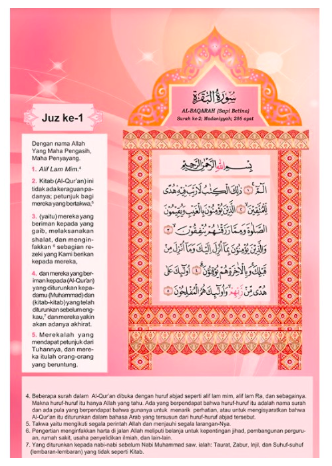 سُورَةُ الْبَقَرَةِ
AL-BAQARAH (Sapi Betina)
Surah ke-2. Madaniyyah; 286 ayat
Juz ke-1
بِسْمِ اللهِ الرَّحْمٰنِ الرَّحِيْمِ
الٓمّٓ ۚ ذٰلِكَ الْكِتٰبُ لَا رَيْبَ ۛ فِيْهِ ۛ هُدًى
لِّلْمُتَّقِيْنَ ۙ الَّذِيْنَ يُؤْمِنُوْنَ بِالْغَيْبِ وَيُقِيْمُوْنَ
الصَّلٰوةَ وَمِمَّا رَزَقْنٰهُمْ يُنْفِقُوْنَ ۙ
وَالَّذِيْنَ يُؤْمِنُوْنَ بِمَآ اُنْزِلَ اِلَيْكَ وَمَآ اُنْزِلَ مِنْ
قَبْلِكَ ۚ وَبِالْاٰخِرَةِ هُمْ يُوْقِنُوْنَ ۗ اُولٰۤىِٕكَ عَلٰى
هُدًى مِّنْ رَّبِّهِمْ ۙ وَاُولٰۤىِٕكَ هُمُ الْمُفْلِحُوْنَ
Dengan nama Allah
Yang Maha Pengasih,
Maha Penyayang.
1. Alif Lam Mim.⁴
2. Kitab (Al-Qur'an) ini
tidak ada keraguan pa-
danya; petunjuk bagi
mereka yang bertakwa,⁵
3. (yaitu) mereka yang
beriman kepada yang
gaib, melaksanakan
shalat, dan mengin-
fakkan⁶ sebagian re-
zeki yang Kami berikan
kepada mereka,
4. dan mereka yang ber-
iman kepada (Al-Qur'an)
yang diturunkan kepa-
damu (Muhammad) dan
(kitab-kitab) yang telah
diturunkan sebelum eng-
kau,⁷ dan mereka yakin
akan adanya akhirat.
5. Merekalah yang
mendapat petunjuk dari
Tuhannya, dan mere-
ka itulah orang-orang
yang beruntung.
4. Beberapa surah dalam Al-Qur'an dibuka dengan huruf abjad seperti alif lam mim, alif lam Ra, dan sebagainya.
Makna huruf-huruf itu hanya Allah yang tahu. Ada yang berpendapat bahwa huruf-huruf itu adalah nama surah
dan ada pula yang berpendapat bahwa gunanya untuk menarik perhatian, atau untuk mengisyaratkan bahwa
Al-Qur'an itu diturunkan dalam bahasa Arab yang tersusun dari huruf-huruf abjad tersebut.
5. Takwa yaitu mengikuti segala perintah Allah dan menjauhi segala larangan-Nya.
6. Pengertian menginfakkan harta di jalan Allah meliputi belanja untuk kepentingan jihad, pembangunan pergu-
an, rumah sakit, usaha penyelidikan ilmiah, dan lain-lain.
7. Yang diturunkan kepada nabi-nabi sebelum Nabi Muhammad saw. ialah: Taurat, Zabur, Injil, dan Suhuf-suhuf
(lembaran-lembaran) yang tidak seperti Kitab.